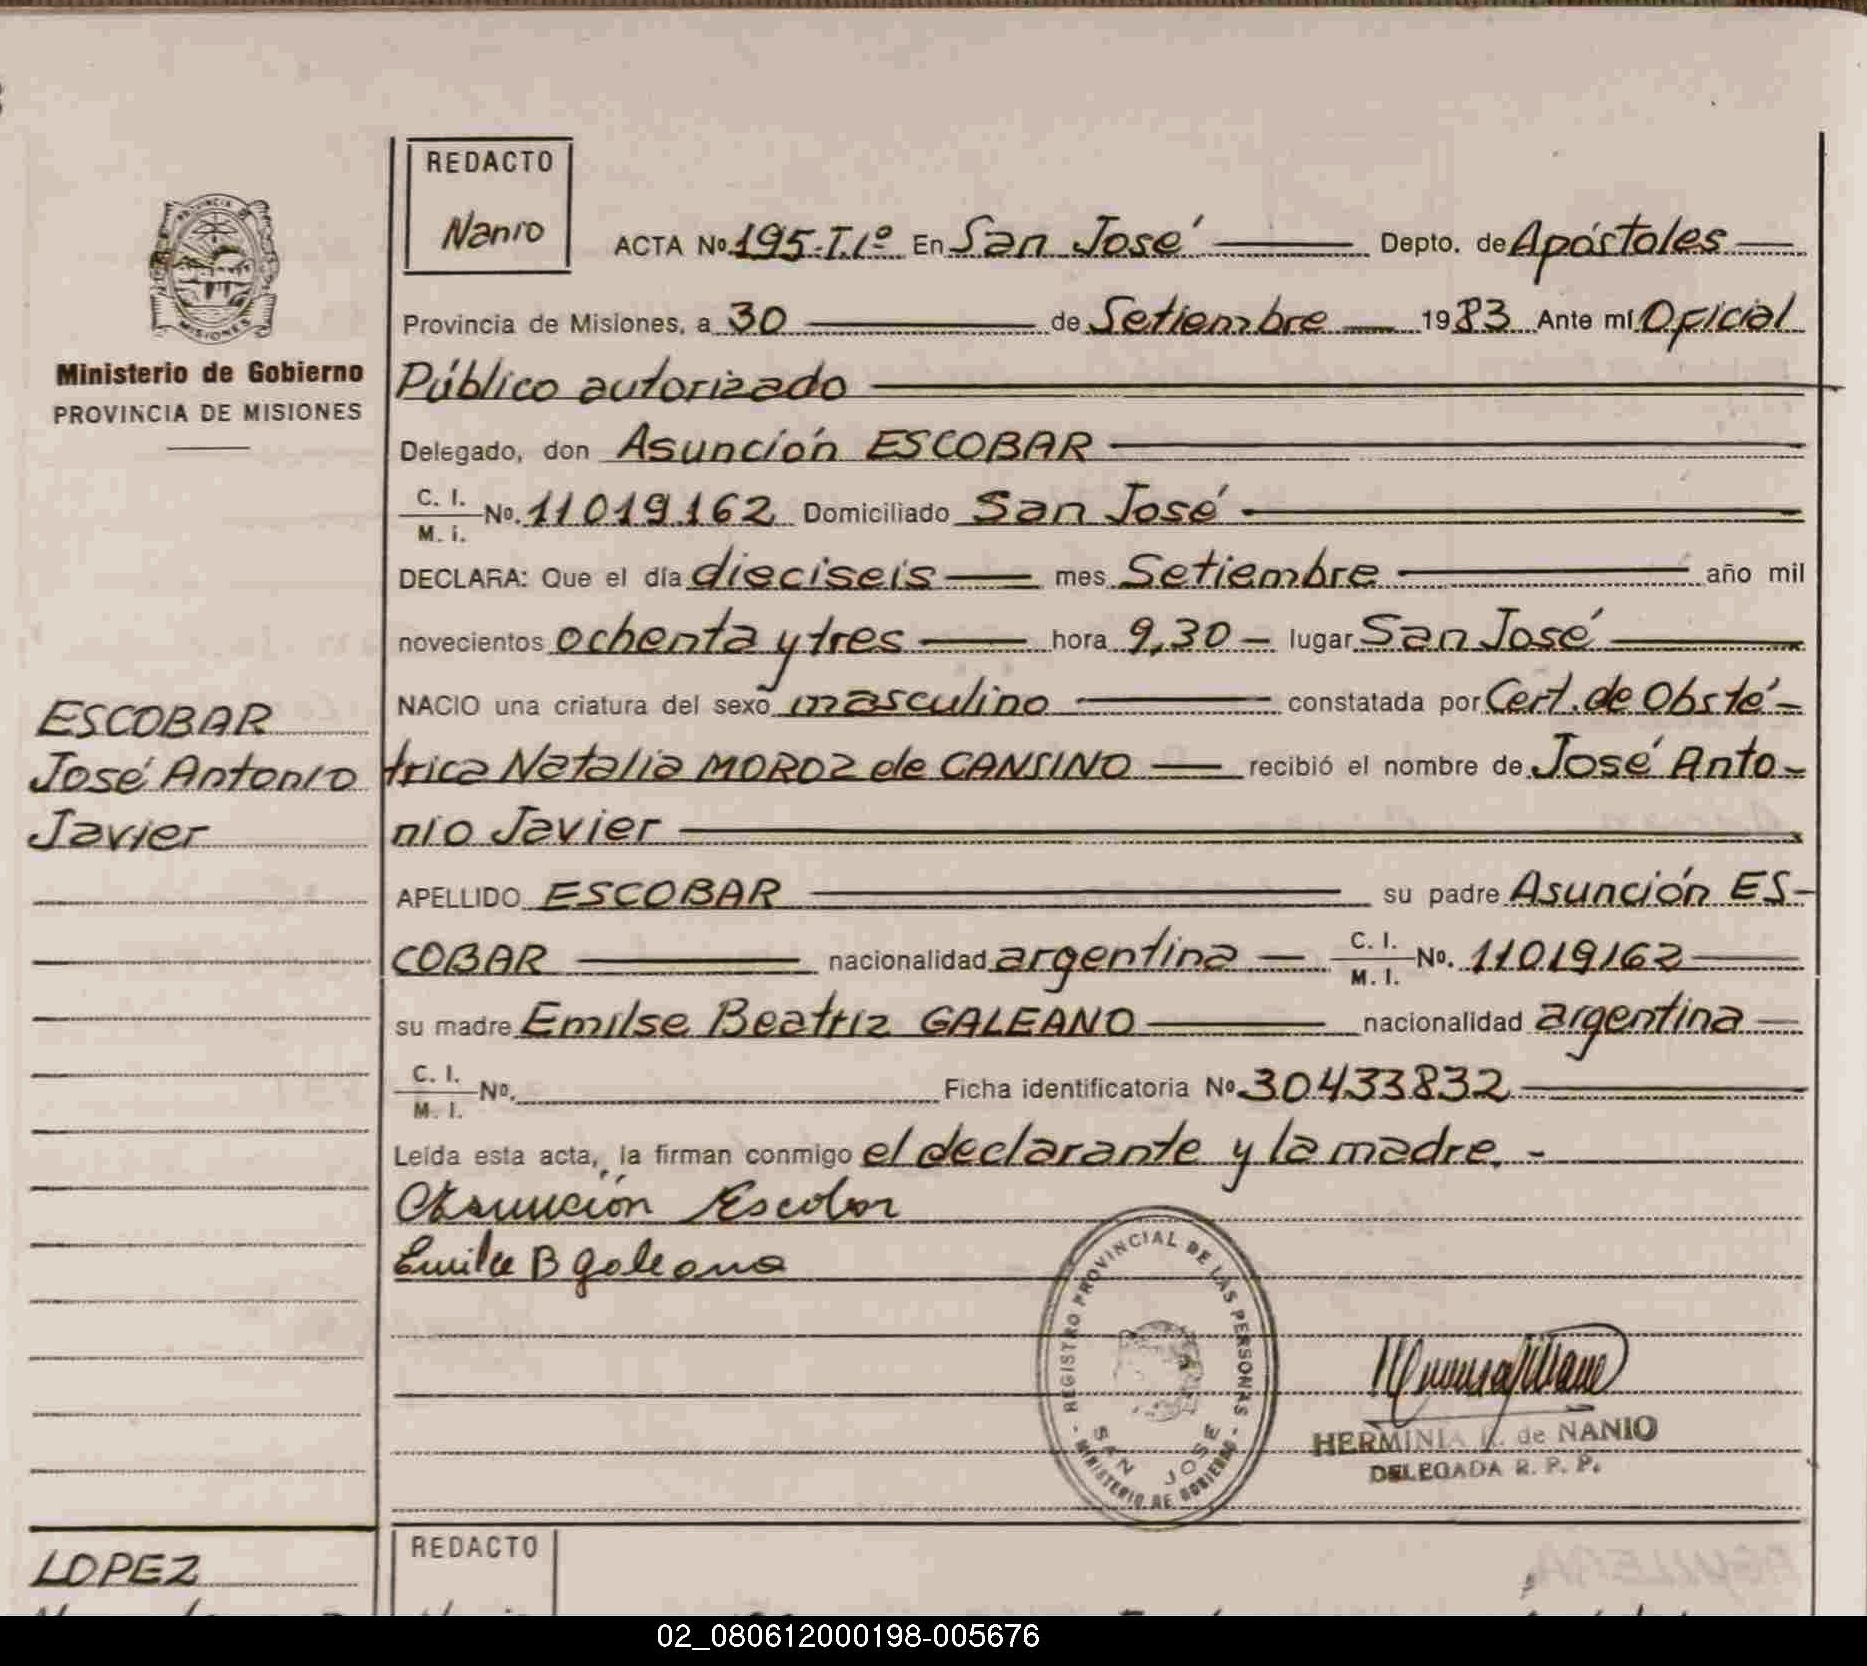 REDACTO
Nanio
ACTA No. 195-T.1º En San José Depto. de Apóstoles
Provincia de Misiones, a 30 de Setiembre 1983 Ante mí Oficial
Ministerio de Gobierno
PROVINCIA DE MISIONES
Público autorizado
Delegado, don Asunción ESCOBAR
C. I.
M. I. No. 11019.162 Domiciliado San José
DECLARA: Que el día dieciseis mes Setiembre año mil
novecientos ochenta y tres hora 9,30 lugar San José
NACIO una criatura del sexo masculino constatada por Cert. de Obsté-
trica Natalia MOROZ de CANSINO recibió el nombre de José Anto-
nio Javier
ESCOBAR
José Antonio
Javier
APELLIDO ESCOBAR su padre Asunción ES-
COBAR nacionalidad argentina C. I. M. I. No. 11019162
su madre Emilse Beatriz GALEANO nacionalidad argentina
C. I.
M. I. No. Ficha identificatoria No 30433832
Leída esta acta, la firman conmigo el declarante y la madre.-
Asunción Escobar
Emilce B galeano
REGISTRO PROVINCIAL DE LAS PERSONAS
MINISTERIO DE GOBIERNO
SAN JOSE
HERMINIA de NANIO
DELEGADA R. P. P.
LOPEZ
REDACTO
02_080612000198-005676